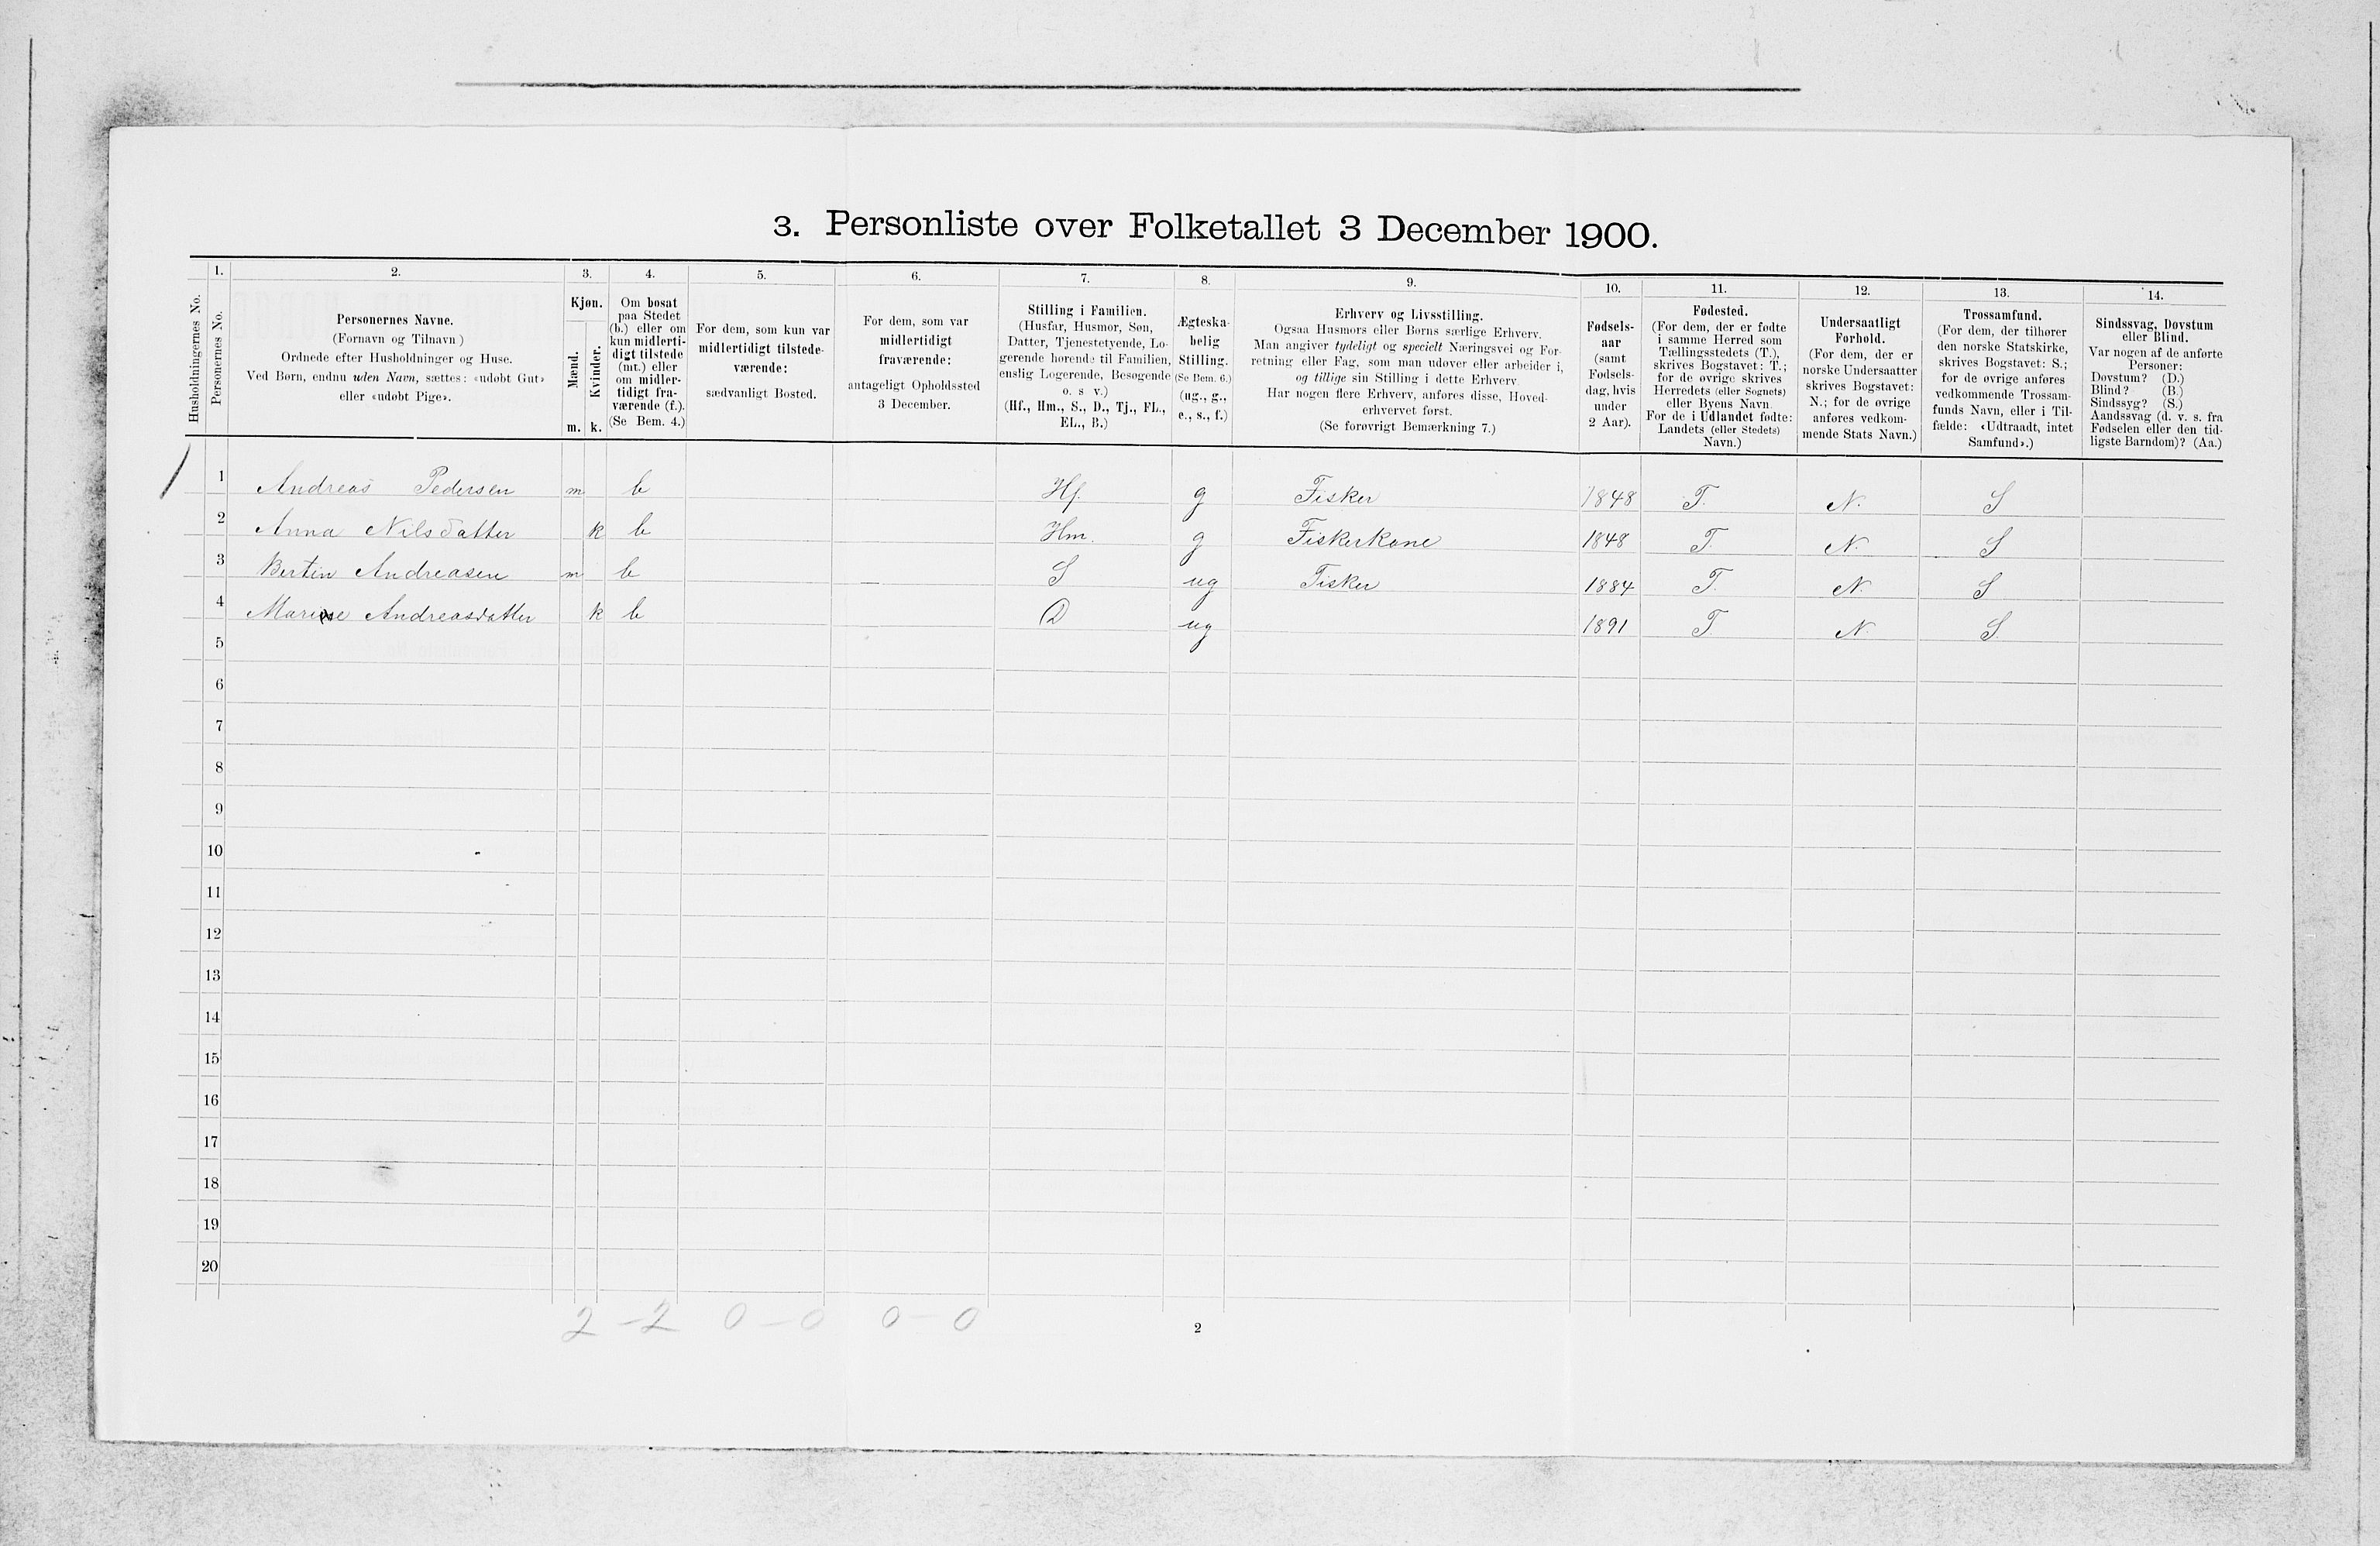 3. Personliste over Folketallet 3 December 1900.
1. 2. 3. 4. 5. 6. 7. 8. 9. 10. 11. 12. 13. 14.
Husholdningernes No.
Personernes No.
Personernes Navne.
(Fornavn og Tilnavn)
Ordnede efter Husholdninger og Huse.
Ved Børn, endnu uden Navn, sættes: «udøbt Gut»
eller «udøbt Pige».
Kjøn.
Mænd.
Kvinder.
m. k.
Om bosat
paa Stedet
(b.) eller om
kun midlerti-
digt tilstede
(mt.) eller
om midler-
tidigt fra-
værende (f.).
(Se Bem. 4.)
For dem, som kun var
midlertidigt tilstede-
værende:
sædvanligt Bosted.
For dem, som var
midlertidigt
fraværende:
antageligt Opholdssted
3 December.
Stilling i Familien.
(Husfar, Husmor, Søn,
Datter, Tjenestetyende, Lo-
gerende hørende til Familien,
enslig Logerende, Besøgende
o. s v.)
(Hf., Hm., S., D., Tj., FL.,
EL., B.)
Ægteska-
belig
Stilling.
(Se Bem. 6.)
(ug., g.,
e., s., f.)
Erhverv og Livsstilling.
Ogsaa Husmors eller Børns særlige Erhverv.
Man angiver tydeligt og specielt Næringsvei og For-
retning eller Fag, som man udøver eller arbeider i,
og tillige sin Stilling i dette Erhverv.
Har nogen flere Erhverv, anføres disse, Hoved-
erhvervet først.
(Se forøvrigt Bemærkning 7.)
Fødsels-
aar
(samt
Fødsels-
dag, hvis
under
2 Aar).
Fødested.
(For dem, der er fødte
i samme Herred som
Tællingsstedets (T.),
skrives Bogstavet: T.;
for de øvrige skrives
Herredets (eller Sognets)
eller Byens Navn.
For de i Udlandet fødte:
Landets (eller Stedets)
Navn.)
Undersaatligt
Forhold.
(For dem, der er
norske Undersaatter
skrives Bogstavet:
N.; for de øvrige
anføres vedkom-
mende Stats Navn.)
Trossamfund.
(For dem, der tilhører
den norske Statskirke,
skrives Bogstavet: S.;
for de øvrige anføres
vedkommende Trossam-
funds Navn, eller i Til-
fælde: «Udtraadt, intet
Samfund».)
Sindssvag, Døvstum
eller Blind.
Var nogen af de anførte
Personer:
Døvstum? (D.)
Blind? (B.)
Sindssyg? (S.)
Aandssvag (d. v. s. fra
Fødselen eller den tid-
ligste Barndom)? (Aa.)
1 Andreas Pedersen m b Hf. g Fisker 1848 T. N. S
2 Anna Nilsdatter k b Hm. g Fiskerkone 1848 T. N. S
3 Bertin Andreasen m b S ug Fisker 1884 T. N. S
4 Marine Andreasdatter k b D ug 1891 T. N. S
5
6
7
8
9
10
11
12
13
14
15
16
17
18
19
20
2 - 2 0 - 0 0 - 0
2